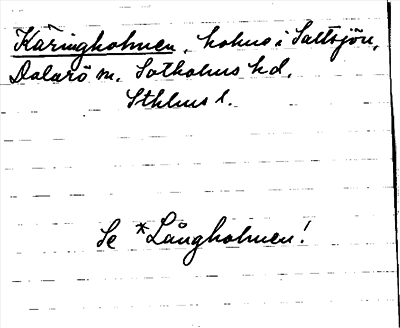 Käringholmen, holme i Saltsjön,
Dalarö sn. Sotholms hd.
Sthlms l.
Se *Långholmen!